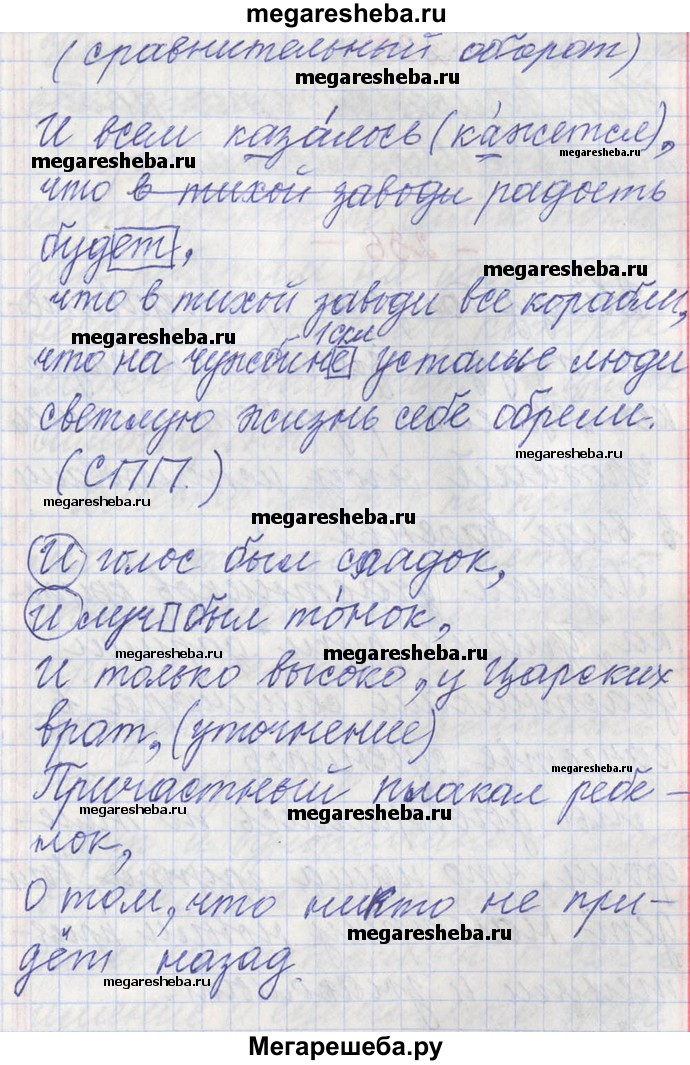 megaresheba.ru
(сравнительный оборот)
megaresheba.ru
И всем казáлось (кáжется),
megaresheba.ru
megaresheba.ru
что в тихой заводи радость
будет,
megaresheba.ru
что в тихой заводи все корабли,
megaresheba.ru
1 скл
что на чужбине усталые люди
светлую жизнь себе обрели.
megaresheba.ru
(СПП.)
megaresheba.ru
megaresheba.ru
И голос был сладок,
и луч был тóнок,
megaresheba.ru
И только высоко, у Царских
врат, (уточнение)
megaresheba.ru
Причастный плакал ребе-
megaresheba.ru
megaresheba.ru
нок,
О том, что никто не при-
megaresheba.ru
дёт назад.
megaresheba.ru
Мегарешеба.ру